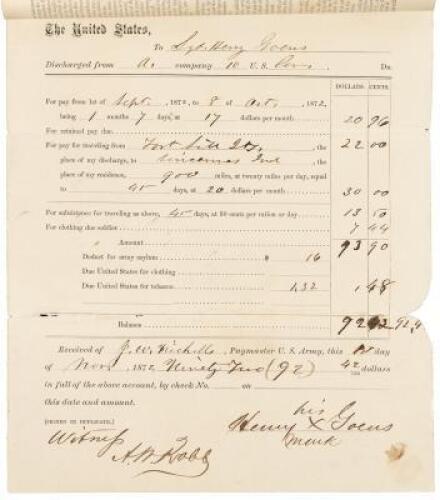 The United States,
To Sgt. Henry Goens
Discharged from A. company 10 U. S. Cav. Dr.
DOLLARS. CENTS.
For pay from 1st of Sept. 1872, to 8 of Oct. 1872,
being 1 months 7 days, at 17 dollars per month 20 96
For retained pay due
For pay for traveling from Fort Sill I.T., the 22 00
place of my discharge, to Vincennes Ind the
place of my residence, 900 miles, at twenty miles per day, equal
to 45 days, at 20 dollars per month 30 00
For subsistence for traveling as above, 45 days, at 30 cents per ration or day 13 50
For clothing due soldier 7 44
" Amount 93 90
Deduct for army asylum $ 16
Due United States for clothing
Due United States for tobacco 1.32 1.48
Balance 92 42 92.4
Received of J. W. Nicholls, Paymaster U. S. Army, this day
of Nov. 1872 Ninety Two (92) 42/100 dollars
in full of the above account, by check No. on
this date and amount.
(SIGNED IN DUPLICATE.)
his
Henry X Goens
mark
Witness
A. W. Robb